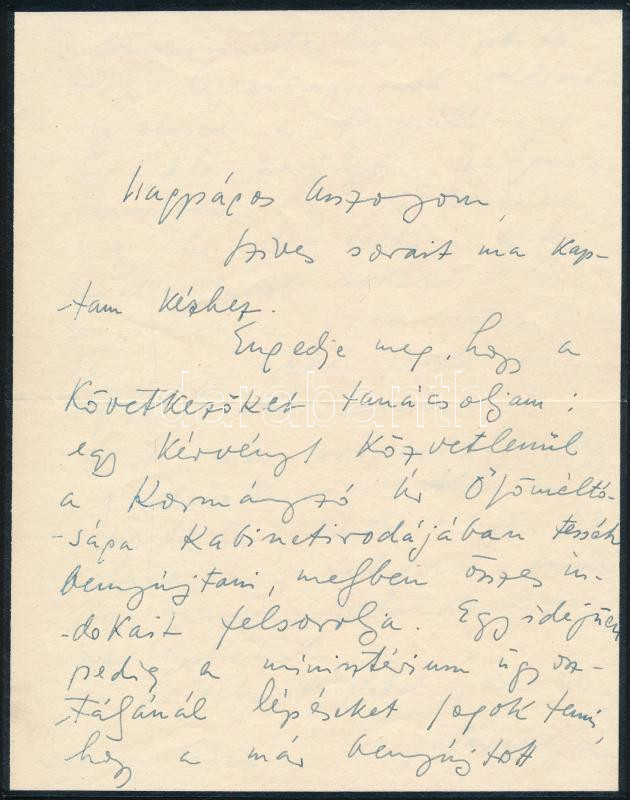 Nagyságos Asszonyom,
szives sorait ma kap-
-tam kézhez.
Engedje meg, hogy a
következőket tanácsoljam:
egy kérvényt közvetlenül
a Kormányzó Úr Őfőméltó-
-sága Kabinetirodájában tessék
benyújtani, melyben összes in-
-dokait felsorolja. Egyidejűen
pedig a minisztérium ügyosz-
-tályánál lépéseket fogok tenni,
hogy a már benyújtott
darabanth